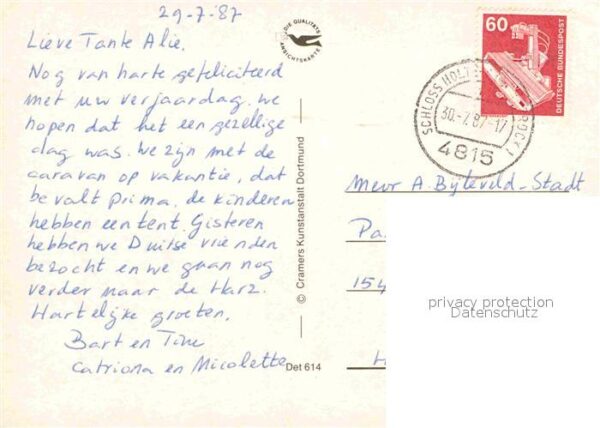 29-7-'87
Lieve Tante Alie.
Nog van harte gefeliciteerd
met uw verjaardag. we
hopen dat het een gezellige
dag was. we zijn met de
caravan op vakantie, dat
bevalt prima. de kinderen
hebben een tent. Gisteren
hebben we Duitse vrienden
bezocht en we gaan nog
verder naar de Harz.
Hartelijke groeten,
Bart en Tine
Catriona en Nicolette
DIE QUALITÄTS
ANSICHTSKARTE
© Cramers Kunstanstalt Dortmund
Det 614
60
DEUTSCHE BUNDESPOST
SCHLOSS HOLT
BROCK 1
30.-7.87-17
4815
Mevr A. Byteveld-Stadt
Pa
154
privacy protection
Datenschutz